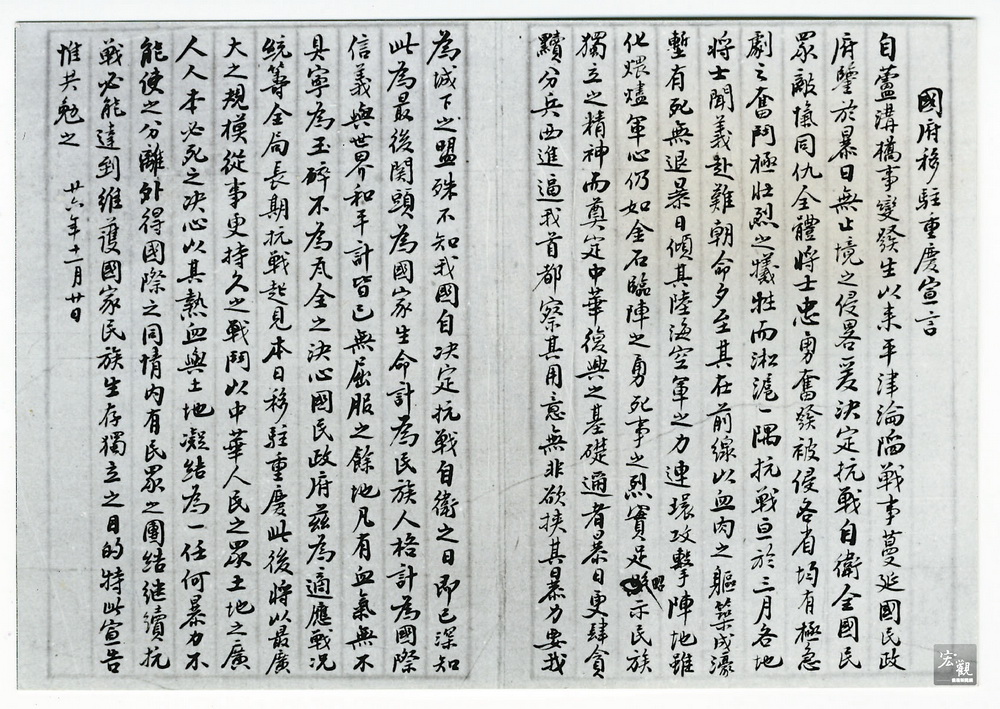 國府移駐重慶宣言
自蘆溝橋事變發生以來平津淪陷戰事蔓延國民政
府鑒於暴日無止境之侵略爰決定抗戰自衛全國民
眾敵愾同仇全體將士忠勇奮發被侵各省均有極急
劇之奮鬥極壯烈之犧牲而淞滬一隅抗戰亘於三月各地
將士聞義赴難朝命夕至其在前線以血肉之軀築成濠
塹有死無退暴日傾其陸海空軍之力連環攻擊陣地雖
化煨燼軍心仍如金石臨陣之勇死事之烈實足昭示民族
獨立之精神而奠定中華復興之基礎邇者暴日更肆貪
黷分兵西進逼我首都察其用意無非欲挾其暴力要我
為城下之盟殊不知我國自決定抗戰自衛之日即已深知
此為最後関頭為國家生命計為民族人格計為國際
信義與世界和平計皆已無屈服之餘地凡有血氣無不
具寧為玉碎不為瓦全之決心國民政府茲為適應戰况
統籌全局長期抗戰起見本日移駐重慶此後將以最廣
大之規模從事更持久之戰鬥以中華人民之眾土地之廣
人人本必死之決心以其熱血與土地凝結為一任何暴力不
能使之分離外得國際之同情內有民眾之團結继續抗
戰必能達到維護國家民族生存獨立之目的特此宣告
惟共勉之　廿六年十一月廿日
宏觀